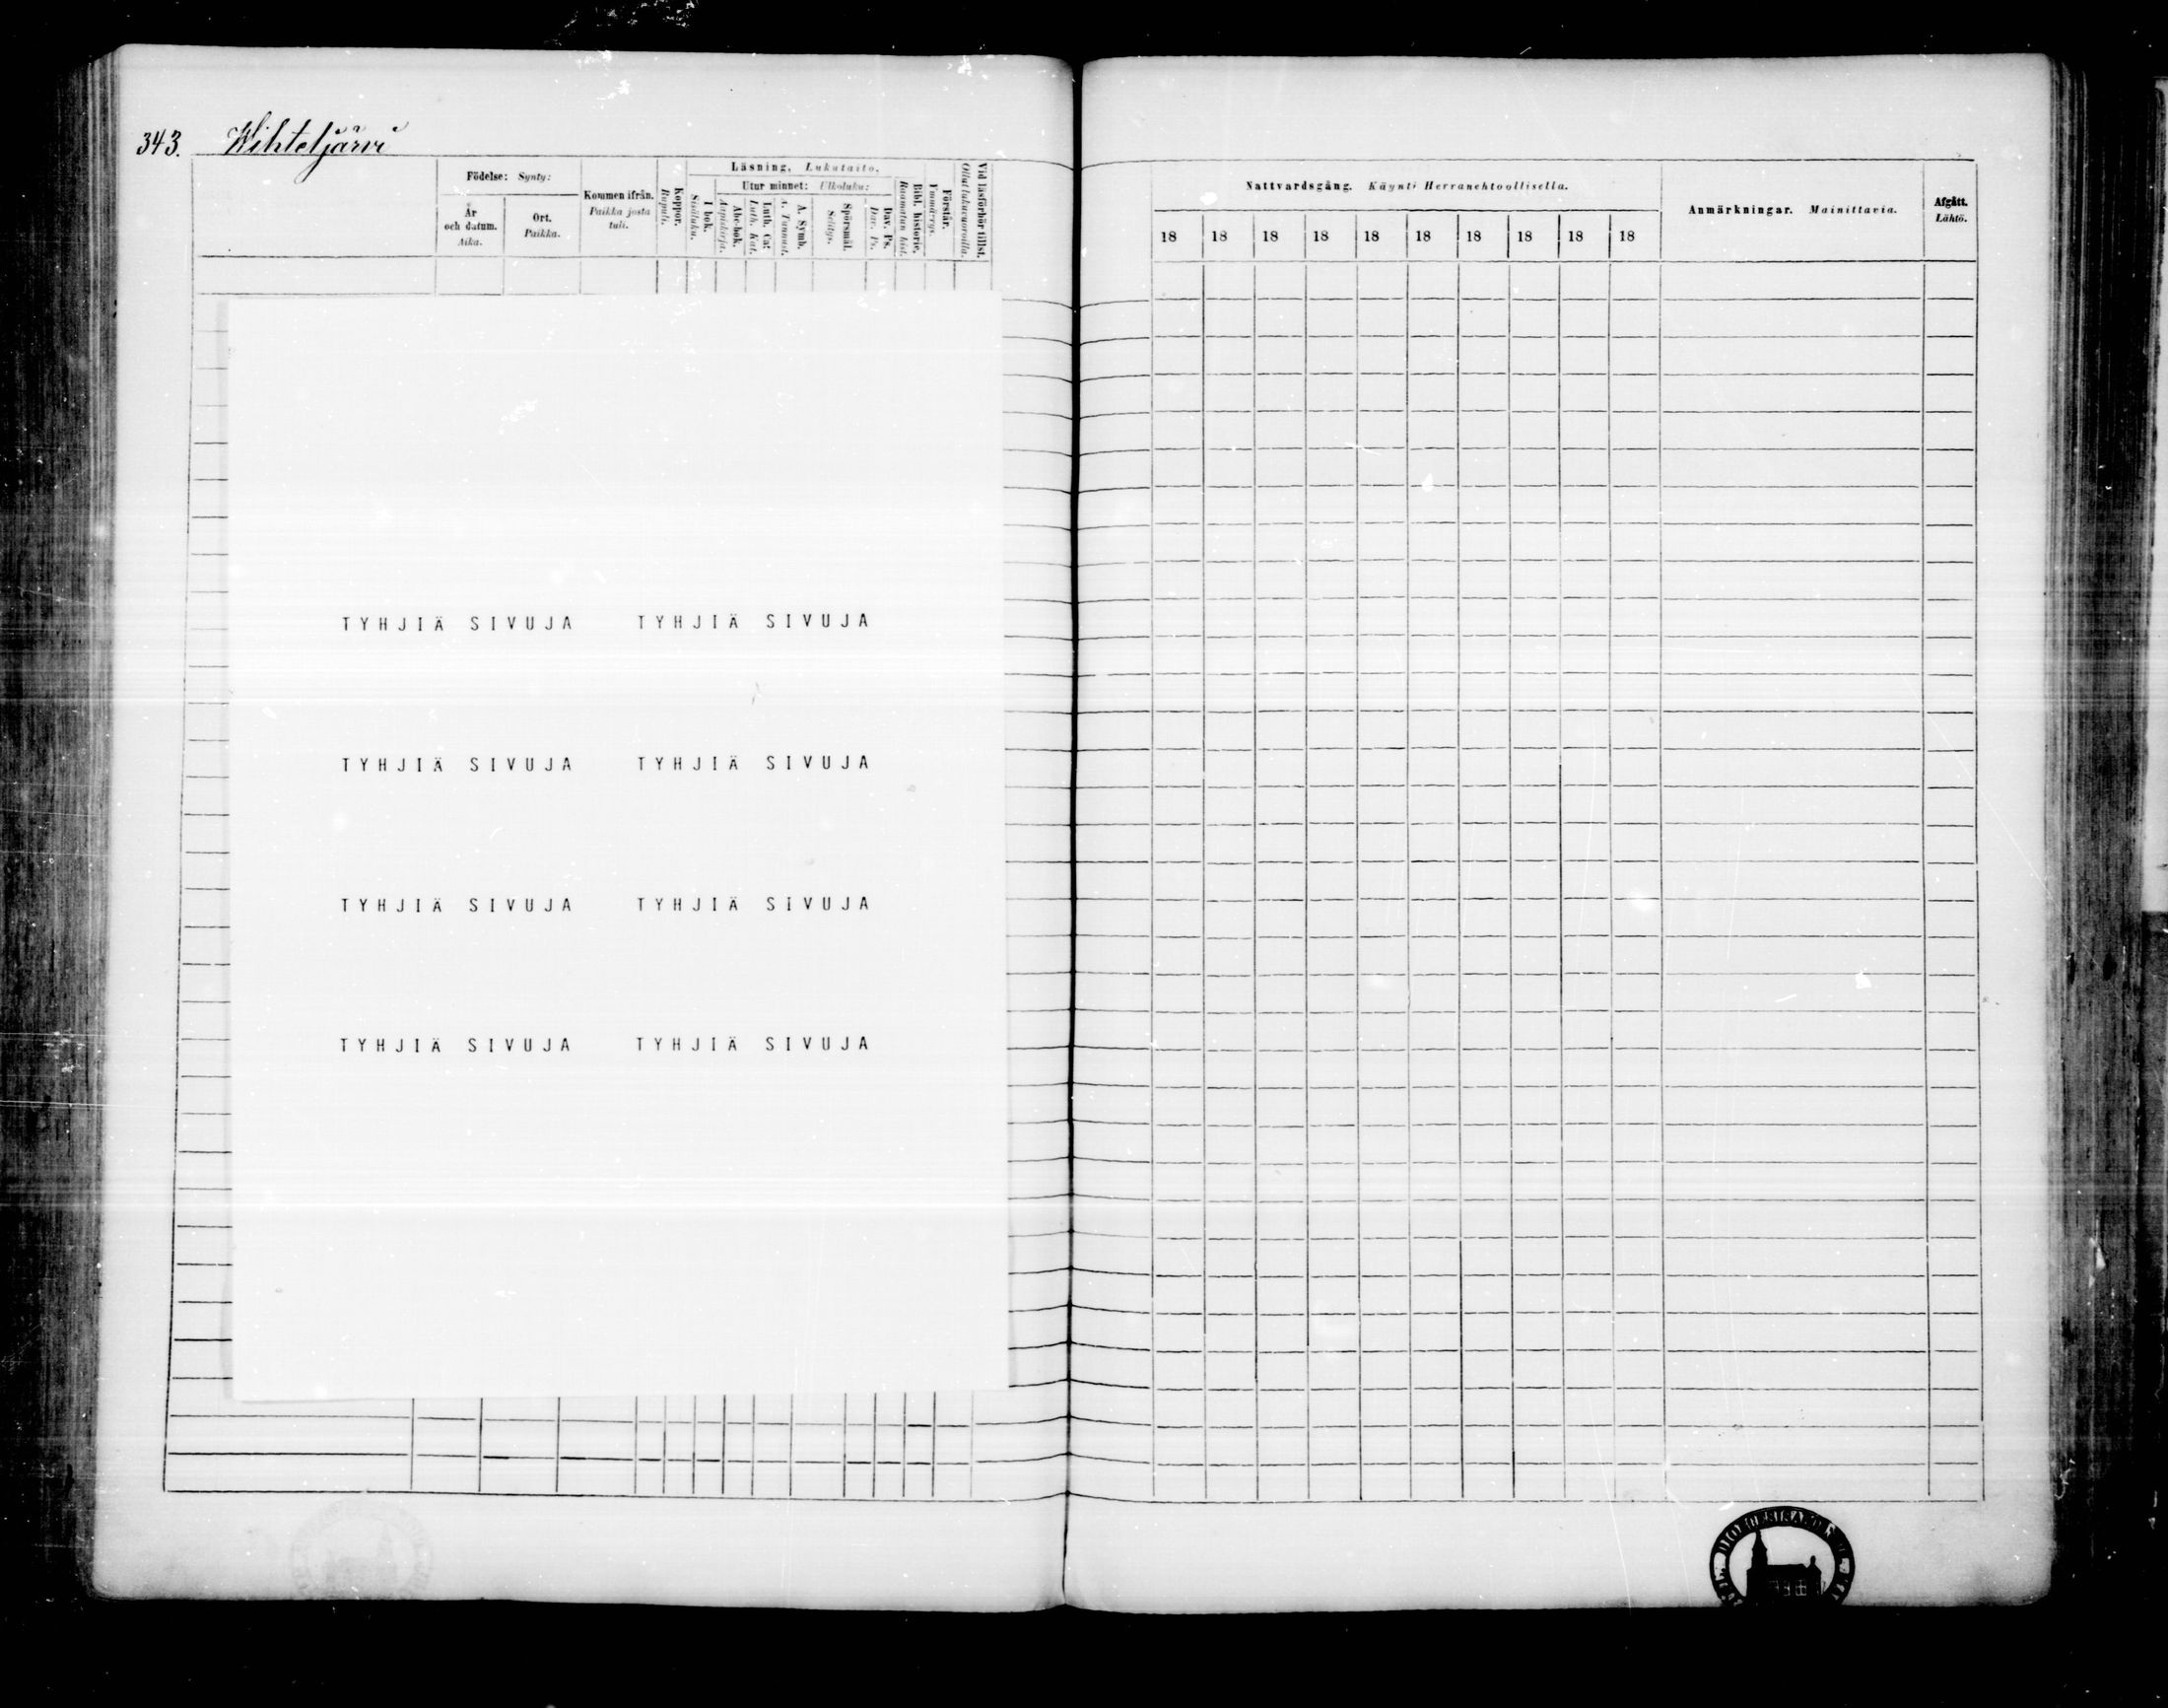 343. Wihteljärvi
Födelse: Synty:
År och datum. Aika.
Ort. Paikka.
Kommen ifrån. Paikka josta tuli.
Koppor. Rupuli.
Läsning, Lukutaito,
I bok. Sisäluku.
Utur minnet: Ulkoluku:
Abc-bok. Aapiskirja.
Luth. Cat. Luth. Kat.
A. Symb. A. Tunnust.
Spörsmål. Selitys.
Dav. Ps. Dav. Ps.
Bibl. historie. Raamatun hist.
Förstår. Ymmärrys.
Vid läsförhör tillst. Ollut lukuvuoroilla.
TYHJIÄ SIVUJA TYHJIÄ SIVUJA
TYHJIÄ SIVUJA TYHJIÄ SIVUJA
TYHJIÄ SIVUJA TYHJIÄ SIVUJA
TYHJIÄ SIVUJA TYHJIÄ SIVUJA
Nattvardsgång. Käynti Herranehtoollisella.
18 18 18 18 18 18 18 18 18 18
Anmärkningar. Mainittavia.
Afgått. Lähtö.